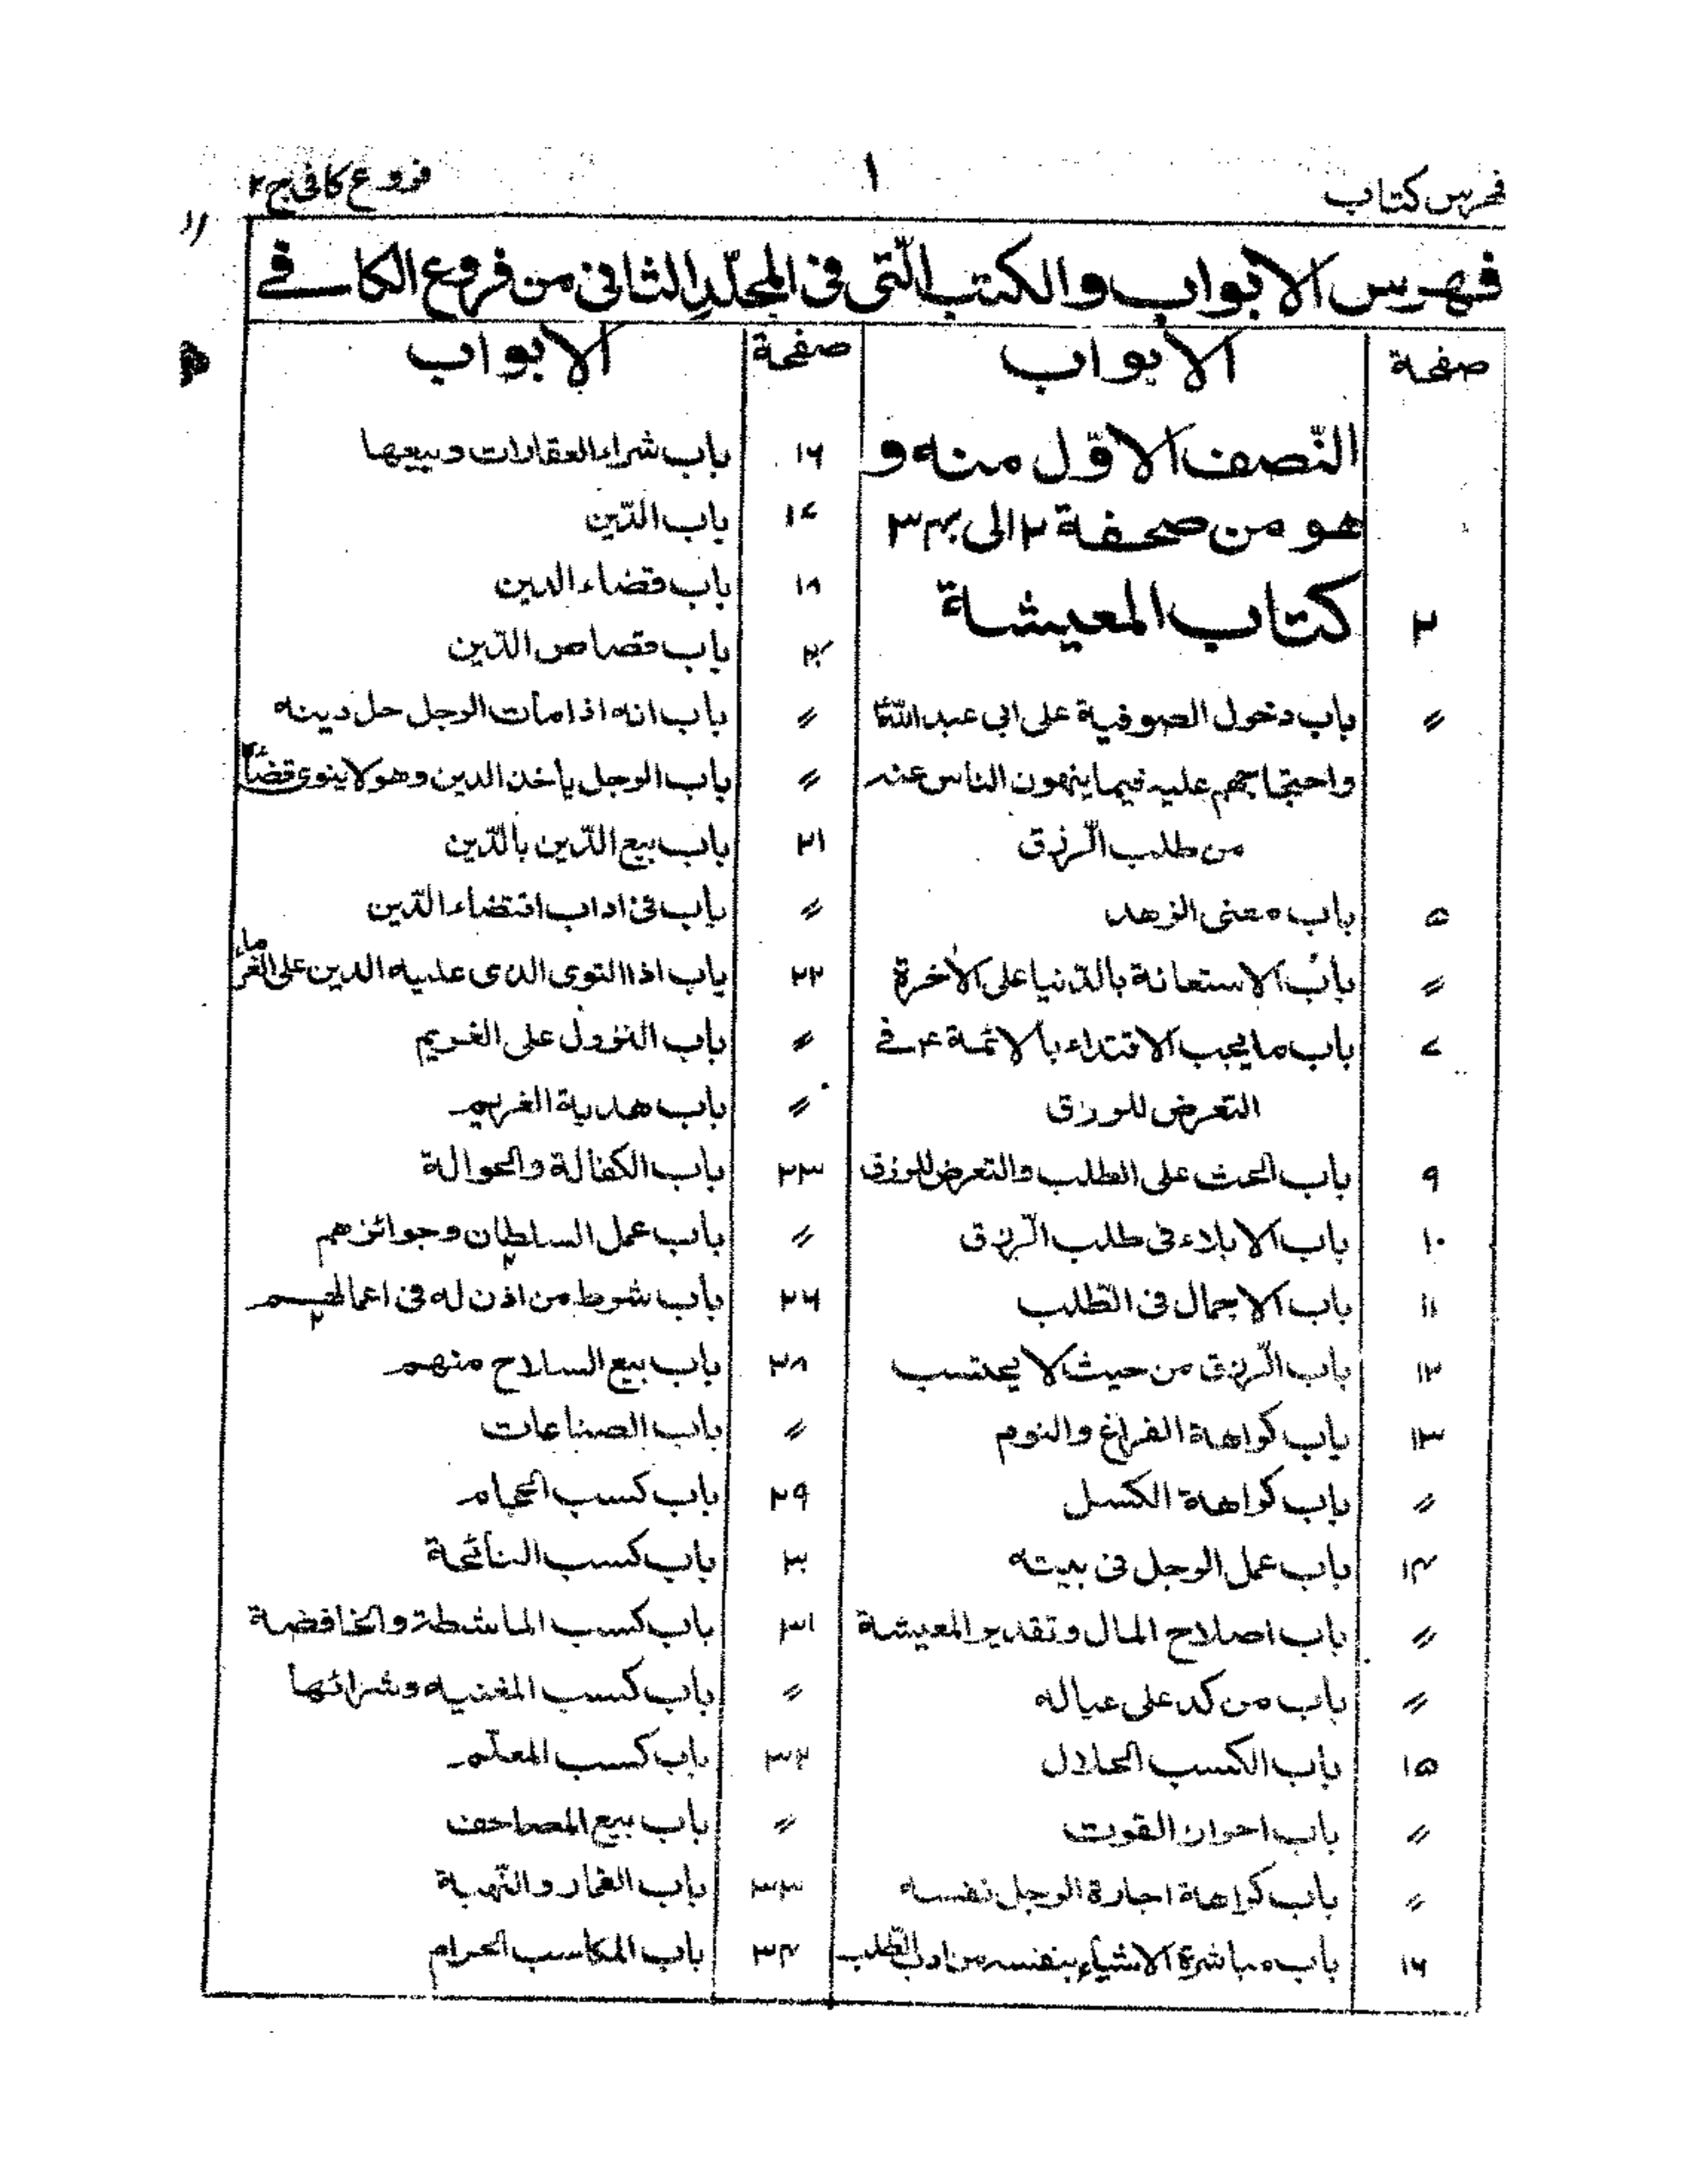 فهرس كتاب
١
فروع كافى ج٢
فهرس الابواب والكتب الّتى فى المجلّد الثانى من فروع الكافي
صفحة الابواب
النّصف الاوّل منه و
هو من صحفة ٢ الى
٢ كتاب المعيشة
〃 باب دخول الصوفية على ابى عبد اللّه ع
واحتجاجهم عليه فيما ينهون الناس عنه
من طلب الّرزق
۵ باب معنى الزهد
〃 باب الاستعانة بالدّنيا على الأخرة
٧ باب ما يجب الاقتداء بالائمة ع في
التعرض للرزق
٩ باب الحث على الطلب والتعرض للرزق
١٠ باب الابلاء فى طلب الّرزق
١١ باب الاجمال فى الطّلب
١٢ باب الّرزق من حيث لا يحتسب
١٣ باب كراهة الفراغ والنوم
〃 باب كراهة الكسل
١۴ باب عمل الرجل فى بيته
〃 باب اصلاح المال وتقدير المعيشة
〃 باب من كد على عياله
١۵ باب الكسب الحلال
〃 باب احراز القوت
〃 باب كراهة اجارة الرجل نفسه
١۶ باب مباشرة الاشياء بنفسه من ادب الطّلب
صفحة الابواب
١۶ باب شراء العقارات وبيعها
١٧ باب الدّين
١٨ باب قضاء الدين
٢٠ باب قصاص الدّين
〃 باب انه اذا مات الرجل حل دينه
〃 باب الرجل ياخذ الدين وهو لا ينوى قضائه
٢١ باب بيع الدّين بالدّين
〃 باب فى اداب اقتضاء الدّين
٢٢ باب اذا التوى الذى عليه الدين على الغرماء
〃 باب النزول على الغريم
〃 باب هدية الغريم
٢٣ باب الكفالة والحوالة
〃 باب عمل السلطان وجوائزهم
٢۶ باب شرط من اذن له فى اعمالهم
٢٨ باب بيع السلاح منهم
〃 باب الصناعات
٢٩ باب كسب الحجام
٣٠ باب كسب النائحة
٣١ باب كسب الماشطة والخافضة
〃 باب كسب المغنيه وشرائها
٣٢ باب كسب المعلّم
〃 باب بيع المصاحف
٣٣ باب القمار والنّهبة
٣۴ باب المكاسب الحرام